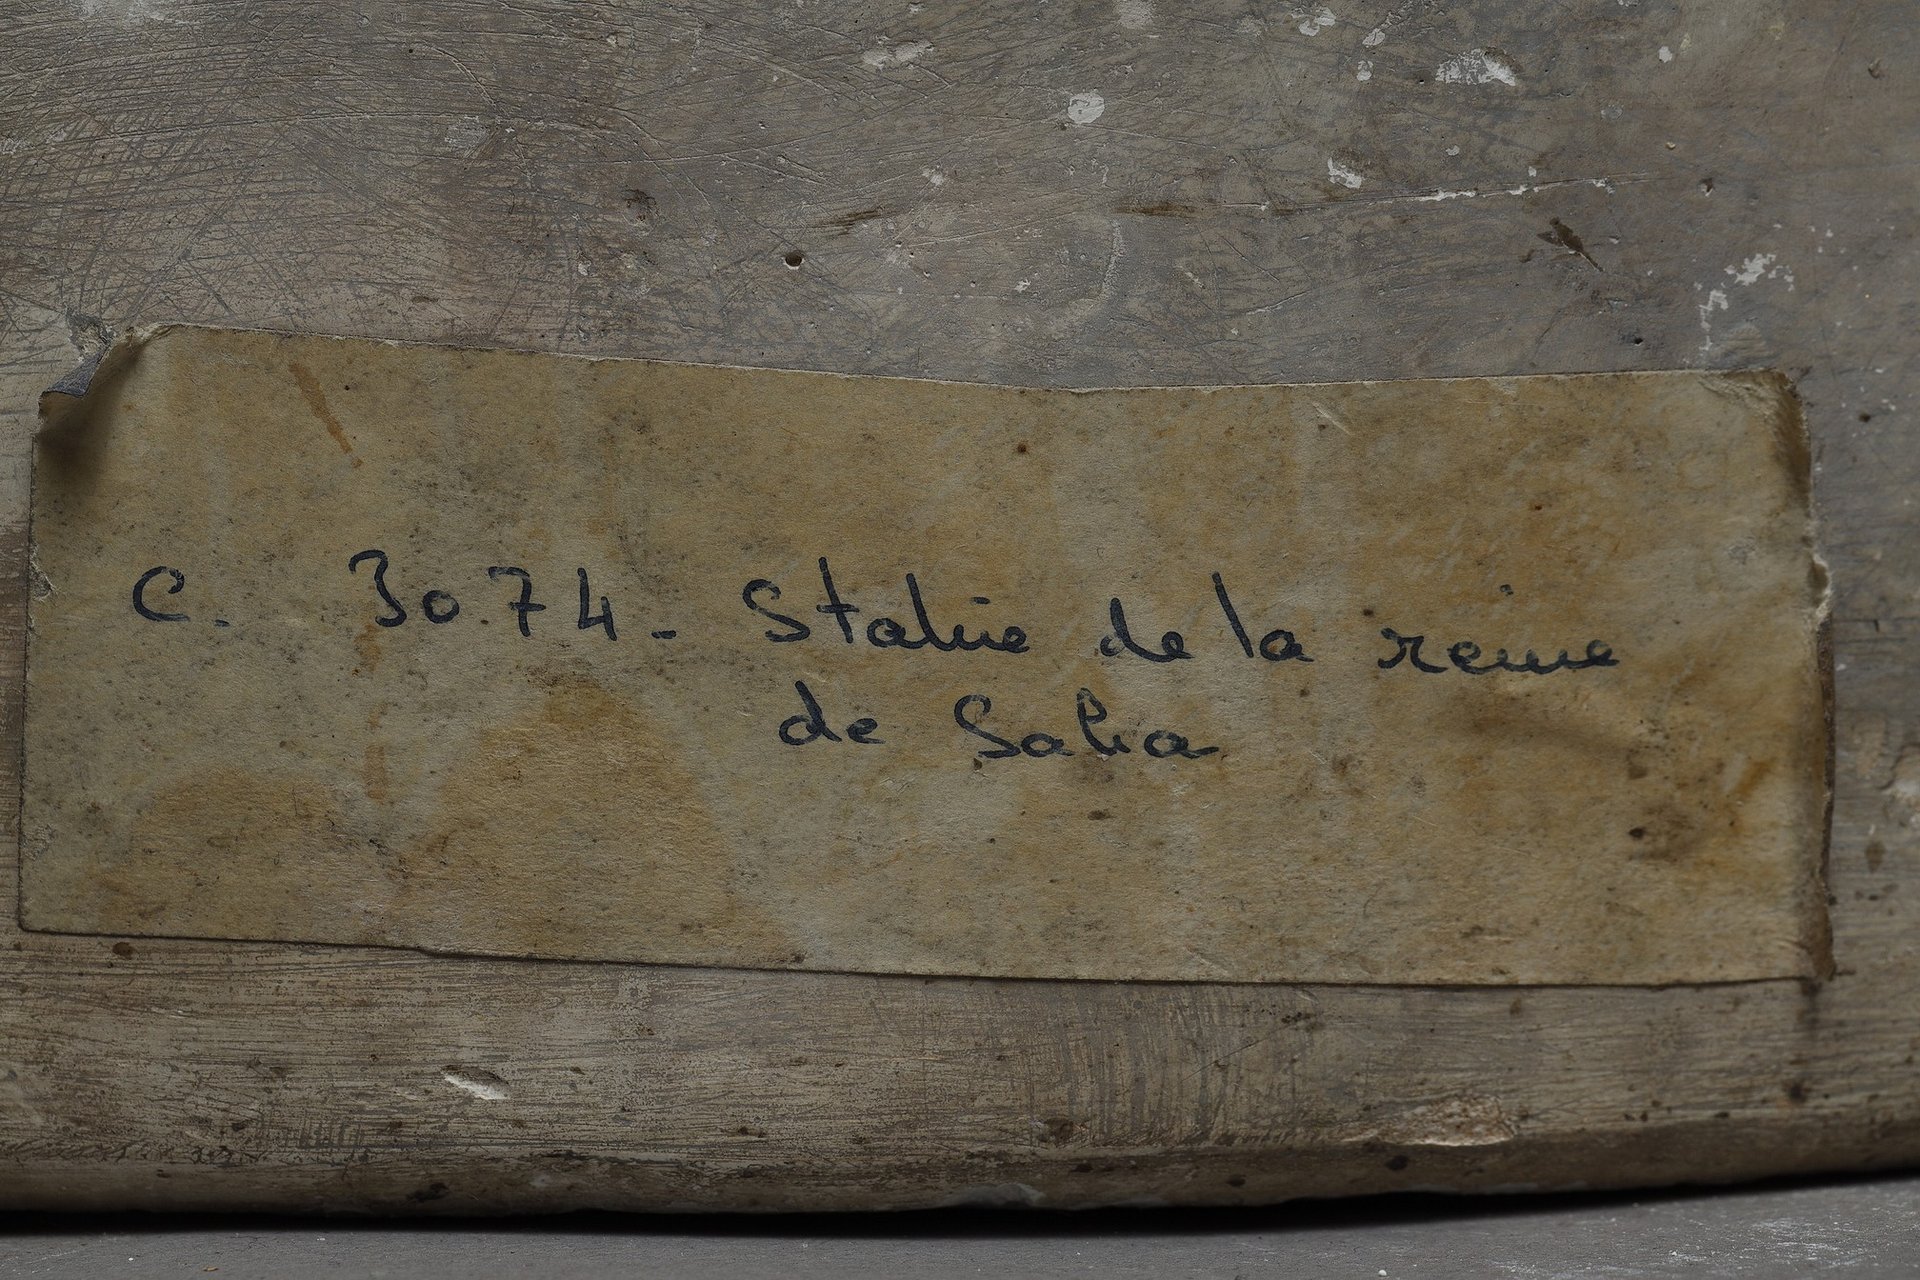 C. 3074 - Statue de la reine
de Saba